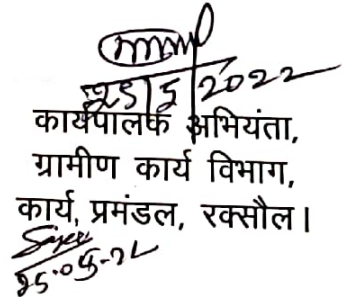 25/5/2022
कार्यपालक अभियंता,
ग्रामीण कार्य विभाग,
कार्य, प्रमंडल, रक्सौल।
25.05-22